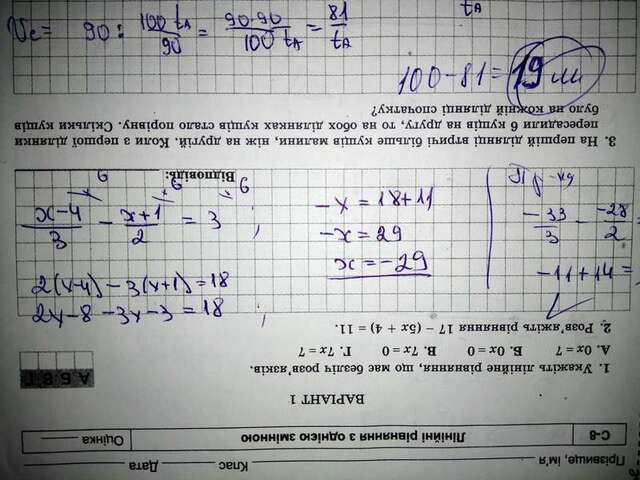 Прізвище, ім'я Клас Дата
С-8 Лінійні рівняння з однією змінною Оцінка
ВАРІАНТ 1
1. Укажіть лінійне рівняння, що має безліч розв'язків.
А. 0x = 7 Б. 0x = 0 В. 7x = 0 Г. 7x = 7
А Б В Г
2. Розв'яжіть рівняння 17 – (5x + 4) = 11.
2(x-4) - 3(x+1) = 18
2x - 8 - 3x - 3 = 18
x-4/3 - x+1/2 = 3
-x = 18+11
-x = 29
x = -29
-33/3 - -28/2 =
-11+14 =
Відповідь:
3. На першій ділянці втричі більше кущів малини, ніж на другій. Коли з першої ділянки
пересадили 6 кущів на другу, то на обох ділянках кущів стало порівну. Скільки кущів
було на кожній ділянці спочатку?
90 : 100/90 = 90·90/100 = 81
100-81=19